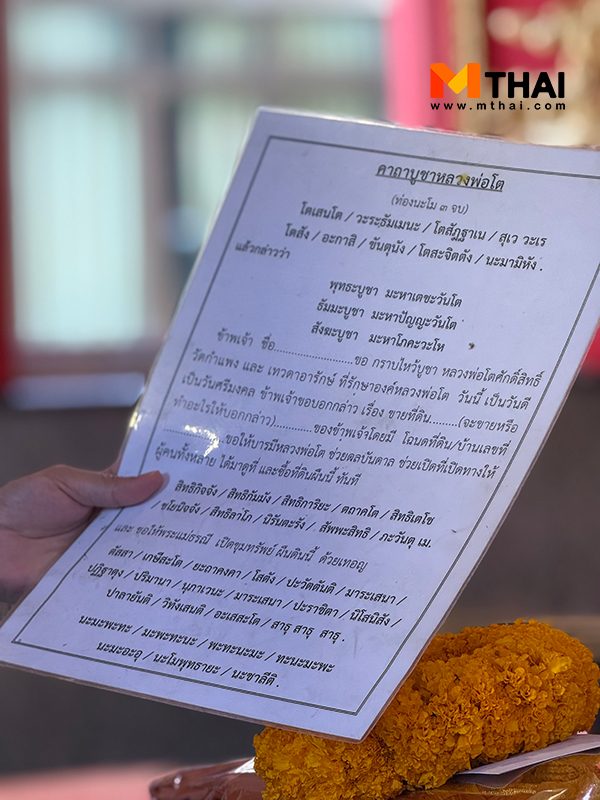 MTHAI
www.mthai.com
คาถาบูชาหลวงพ่อโต
(ท่องนะโม ๓ จบ)
โตเสนโต / วะระธัมเมนะ / โตสัฏฐาเน / สุเว วะเร
โตสัง / อะกาสิ / ขันตุนัง / โตสะจิตตัง / นะมามิหัง .
แล้วกล่าวว่า
พุทธะบูชา มะหาเตชะวันโต
ธัมมะบูชา มะหาปัญญะวันโต
สังฆะบูชา มะหาโภคะวะโห
ข้าพเจ้า ชื่อ........................ขอ กราบไหว้บูชา หลวงพ่อโตศักดิ์สิทธิ์
วัดกำแพง และ เทวดาอารักษ์ ที่รักษาองค์หลวงพ่อโต วันนี้ เป็นวันดี
เป็นวันศรีมงคล ข้าพเจ้าขอบอกกล่าว เรื่อง ขายที่ดิน........(จะขายหรือ
ทำอะไรให้บอกกล่าว)............ของข้าพเจ้าโดยมี โฉนดที่ดิน/บ้านเลขที่
.................. ขอให้บารมีหลวงพ่อโต ช่วยดลบันดาล ช่วยเปิดที่เปิดทางให้
ผู้คนทั้งหลาย ได้มาดูที่ และซื้อที่ดินผืนนี้ ทันที
สิทธิกิจจัง / สิทธิกัมมัง / สิทธิการิยะ / ตถาคโต / สิทธิเตโช
/ ชโยนิจจัง / สิทธิลาโภ / นิรันตะรัง / สัพพะสิทธิ / ภะวันตุ เม.
และ ขอให้พระแม่ธรณี เปิดขุมทรัพย์ ผืนดินนี้ ด้วยเทอญ
ตัสสา / เกษีสะโต / ยะถาคงคา / โสตัง / ปะวัตตันติ / มาระเสนา /
ปฏิฐาตุง / ปริมานา / นุภาเวนะ / มาระเสนา / ปะราชิตา / ทิโสทิสัง /
ปาลายันติ / วิทังเสนติ / อะเสสะโต / สาธุ สาธุ สาธุ .
นะมะพะทะ / มะพะทะนะ / พะทะนะมะ / ทะนะมะพะ
นะมะอะอุ / นะโมพุทธายะ / นะชาลีติ .